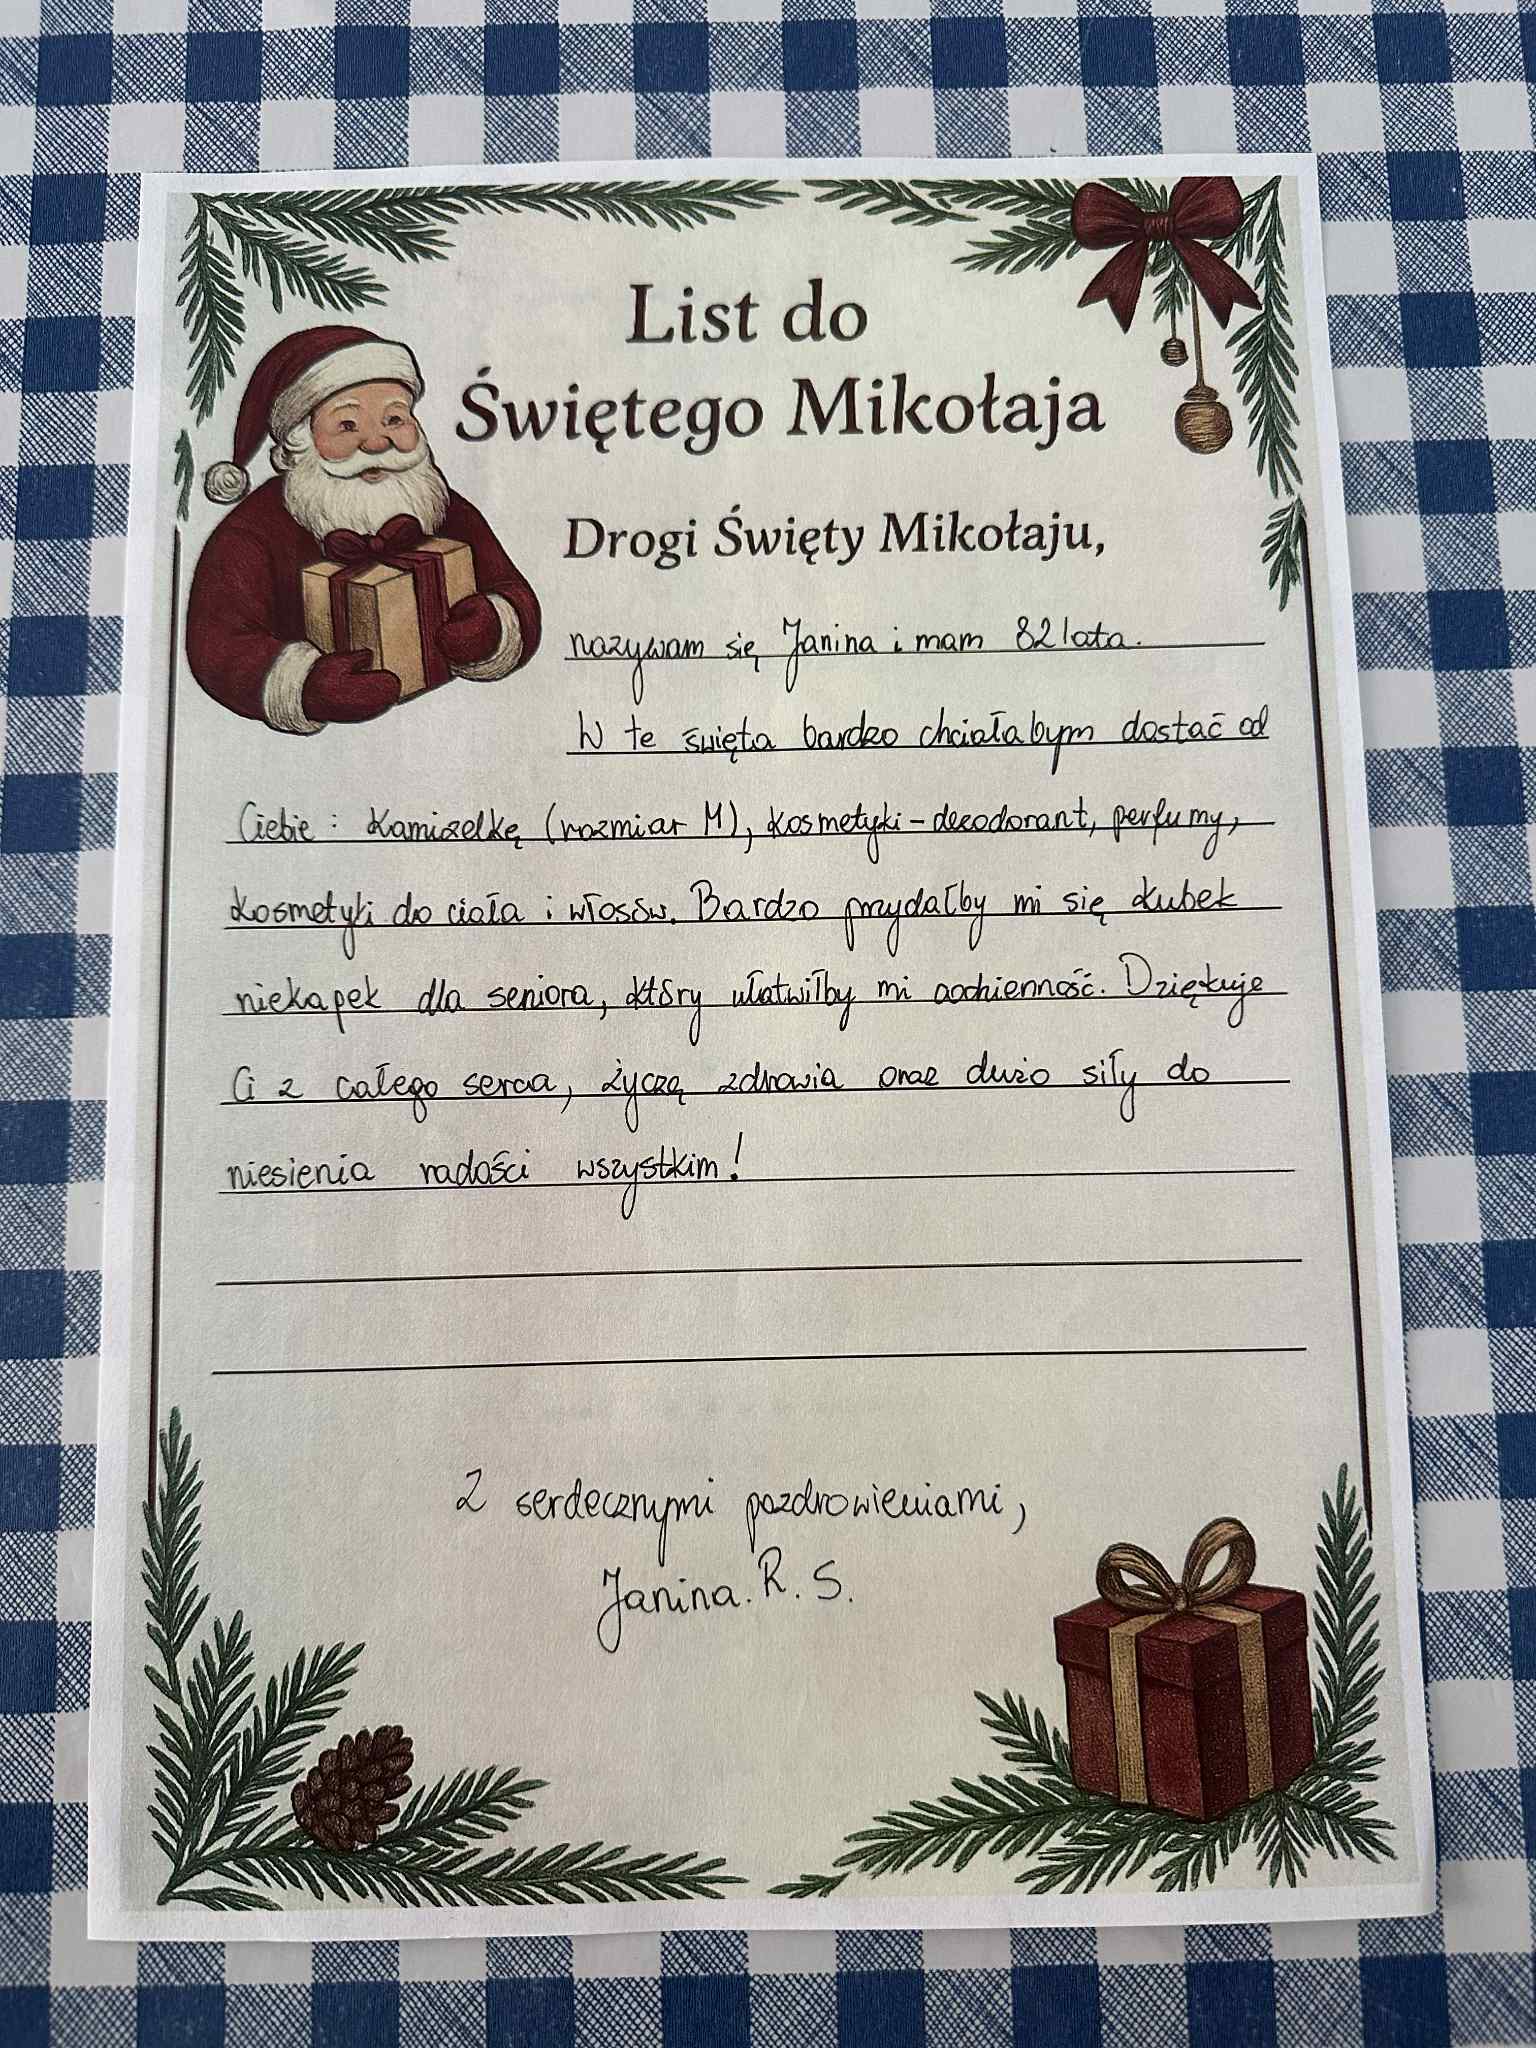 List do
Świętego Mikołaja
Drogi Święty Mikołaju,
nazywam się Janina i mam 82 lata.
W te święta bardzo chciałabym dostać od
Ciebie: kamizelkę (rozmiar M), kosmetyki - dezodorant, perfumy,
kosmetyki do ciała i włosów. Bardzo przydałby mi się kubek
niekapek dla seniora, który ułatwiłby mi codzienność. Dziękuje
Ci z całego serca, życzą zdrowia oraz dużo siły do
niesienia radości wszystkim!
Z serdecznymi pozdrowieniami,
Janina. R. S.